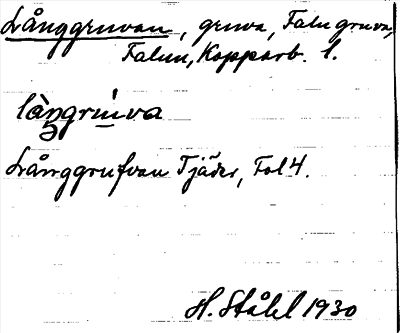 Långgruvan, gruva, Falu gruva,
Falun, Kopparb. l.
làŋgrùva
Långgrufvan Tjäder, Fol 4.
H. Ståhl 1930